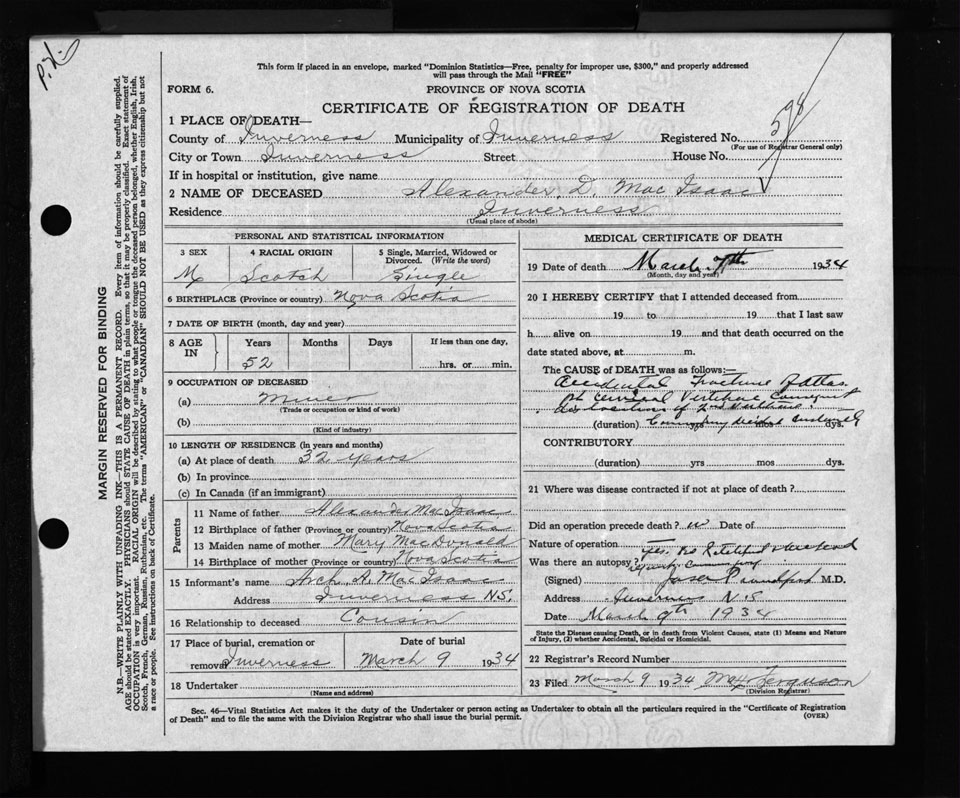 P.N.
This form if placed in an envelope, marked "Dominion Statistics—Free, penalty for improper use, $300," and properly addressed
will pass through the Mail "FREE"
FORM 6. PROVINCE OF NOVA SCOTIA
CERTIFICATE OF REGISTRATION OF DEATH
1 PLACE OF DEATH—
County of Inverness Municipality of Inverness Registered No. 598
(For use of Registrar General only)
City or Town Inverness Street House No.
If in hospital or institution, give name
2 NAME OF DECEASED Alexander D. Mac Isaac
Residence Inverness
(Usual place of abode)
PERSONAL AND STATISTICAL INFORMATION
3 SEX 4 RACIAL ORIGIN 5 Single, Married, Widowed or
Divorced. (Write the word)
M Scotch Single
6 BIRTHPLACE (Province or country) Nova Scotia
7 DATE OF BIRTH (month, day and year)
8 AGE IN Years Months Days If less than one day,
52 hrs. or min.
9 OCCUPATION OF DECEASED
(a) Miner
(Trade or occupation or kind of work)
(b)
(Kind of industry)
10 LENGTH OF RESIDENCE (in years and months)
(a) At place of death 32 years
(b) In province
(c) In Canada (if an immigrant)
Parents
11 Name of father Alexander Mac Isaac
12 Birthplace of father (Province or country) Nova Scotia
13 Maiden name of mother Mary MacDonald
14 Birthplace of mother (Province or country) Nova Scotia
15 Informant's name Arch. A. MacIsaac
Address Inverness N.S.
16 Relationship to deceased Cousin
17 Place of burial, cremation or Date of burial
removal Inverness March 9 1934
18 Undertaker
(Name and address)
MEDICAL CERTIFICATE OF DEATH
19 Date of death March 7th 1934
(Month, day and year)
20 I HEREBY CERTIFY that I attended deceased from
19 to 19 that I last saw
h alive on 19 and that death occurred on
date stated above, at m.
The CAUSE of DEATH was as follows:—
Accidental Fracture of atlas
1st Cervical Vertebrae Consequent
dislocation of 2nd Vertebrae
(duration) yrs mos dys.
CONTRIBUTORY
(duration) yrs mos dys.
21 Where was disease contracted if not at place of death?
Did an operation precede death? no Date of
Nature of operation
Was there an autopsy? yes.
(Signed) M.D.
Address Inverness N.S.
Date March 9th 1934
State the Disease causing Death, or in death from Violent Causes, state (1) Means and Nature
of Injury, (2) whether Accidental, Suicidal or Homicidal.
22 Registrar's Record Number
23 Filed March 9 1934 Ferguson
(Division Registrar)
Sec. 46—Vital Statistics Act makes it the duty of the Undertaker or person acting as Undertaker to obtain all the particulars required in the "Certificate of Registration
of Death" and to file the same with the Division Registrar who shall issue the burial permit. (OVER)
MARGIN RESERVED FOR BINDING
N.B.—WRITE PLAINLY WITH UNFADING INK—THIS IS A PERMANENT RECORD. Every item of information should be carefully supplied.
AGE should be stated EXACTLY. PHYSICIANS should STATE CAUSE OF DEATH in plain terms, so that it may be properly classified. Exact statement of
OCCUPATION is very important. RACIAL ORIGIN will be described by stating to what people or tongue the deceased person belonged, whether English, Irish,
Scotch, French, German, Russian, Ruthenian, etc. The terms "AMERICAN" or "CANADIAN" SHOULD NOT BE USED as they express citizenship but not
a race or people. See instructions on back of Certificate.